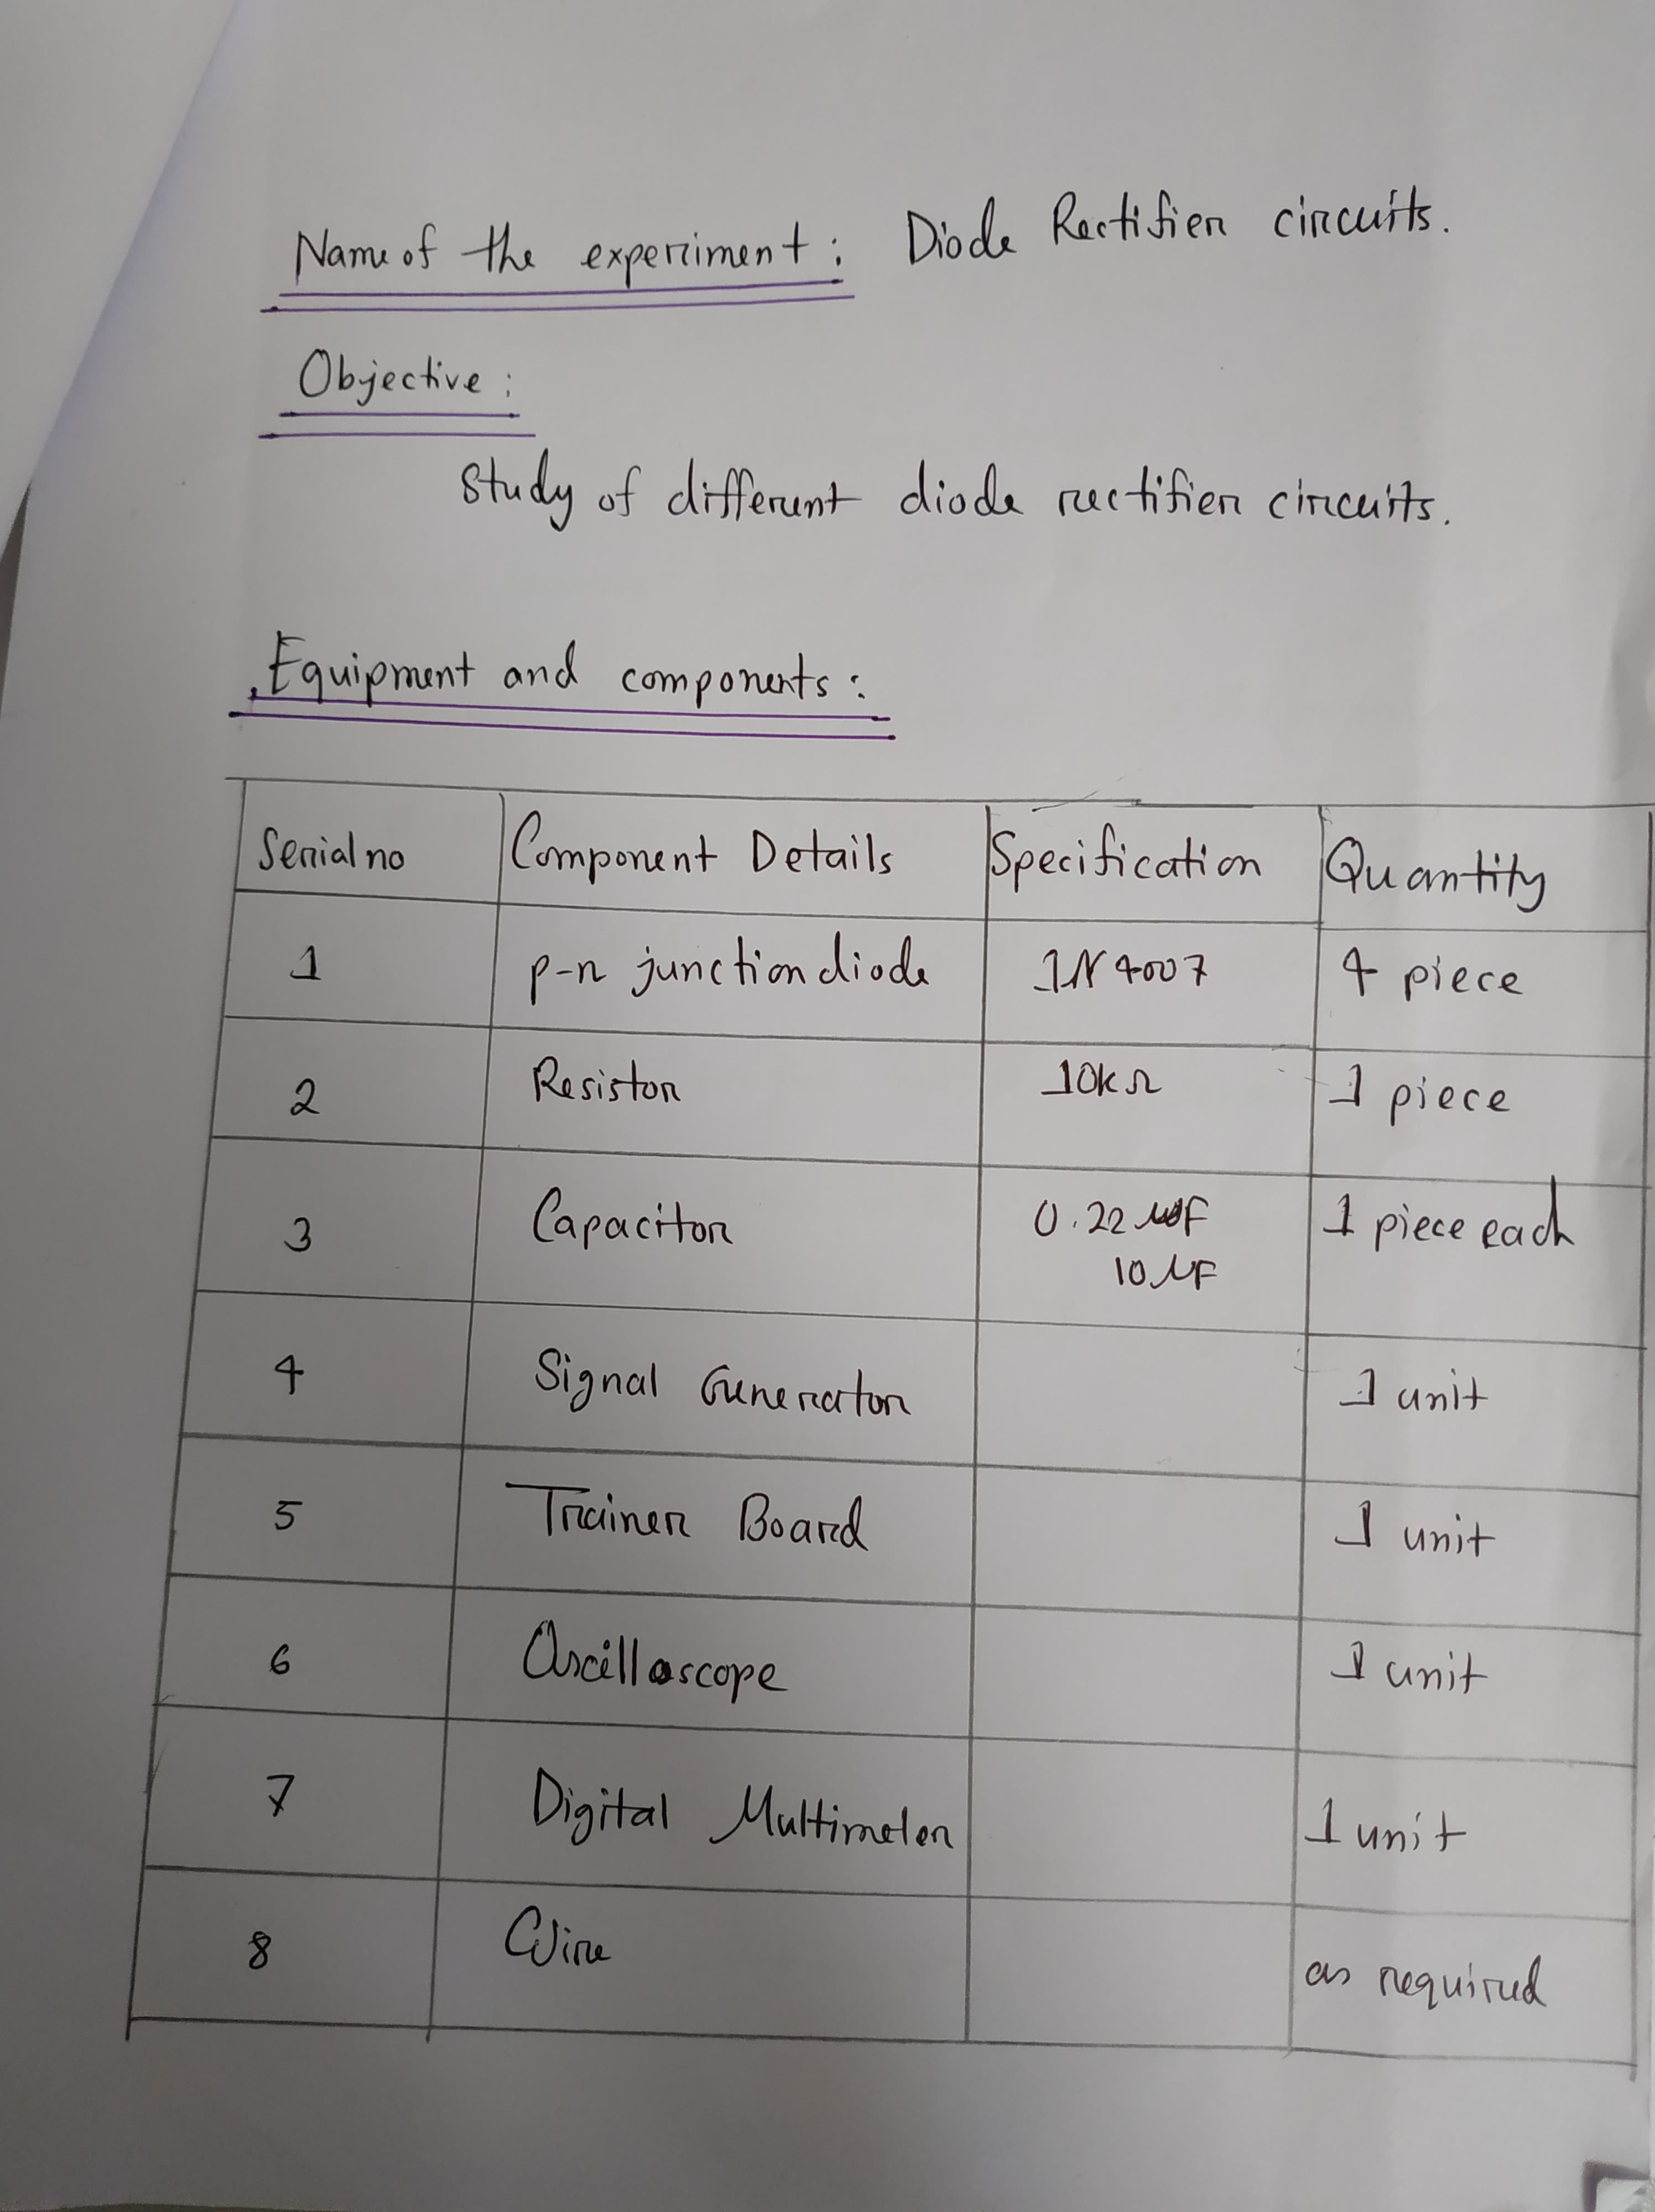 Name of the experiment : Diode Rectifier circuits.
Objective :
Study of different diode rectifier circuits.
Equipment and components :
Serial no Component Details Specification Quantity
1 p-n junction diode 1N4007 4 piece
2 Resistor 10kΩ 1 piece
3 Capacitor 0.22 μF 1 piece each
10 μF
4 Signal Generator 1 unit
5 Trainer Board 1 unit
6 Oscilloscope 1 unit
7 Digital Multimeter 1 unit
8 Wire as required